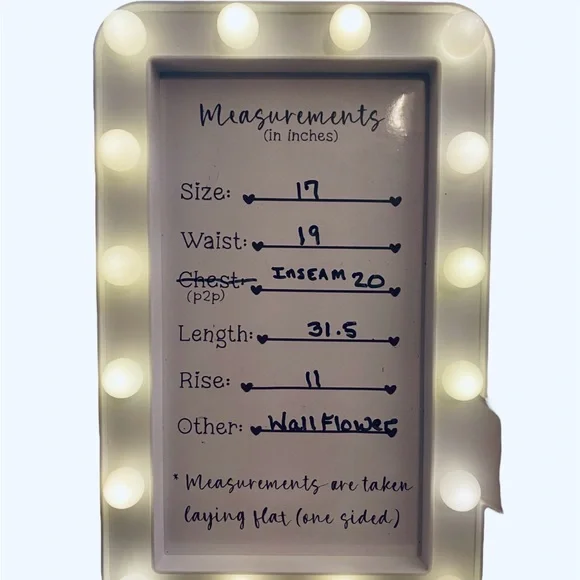 Measurements
(in inches)
Size: 17
Waist: 19
Chest: INSEAM 20
(p2p)
Length: 31.5
Rise: 11
Other: WallFlower
* Measurements are taken
laying flat (one sided)